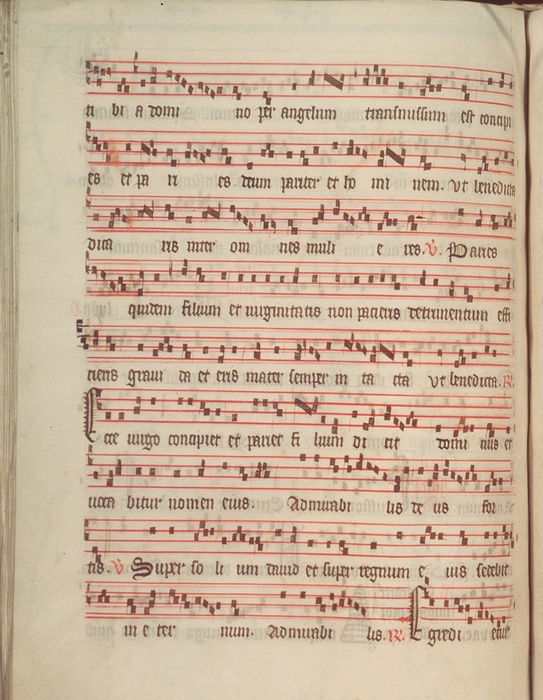 ti bi a domi no per angelum transmissum est concipi
es et pa ri es deum pariter et ho mi nem. Ut benedicta
dica ris inter om nes muli e res. V. Paries
quidem filium et virginitatis non pacieris detrimentum effi
cieris gravi da et eris mater semper in ta cta Ut benedicta. R.
Ecce virgo concipiet et pariet fi lium di cit domi nus et
voca bitur nomen eius. Admirabi lis de us for
tis. V Super so li um david et super regnum e ius sedebit
in e ter num. Admirabi lis. R. E gredi etur